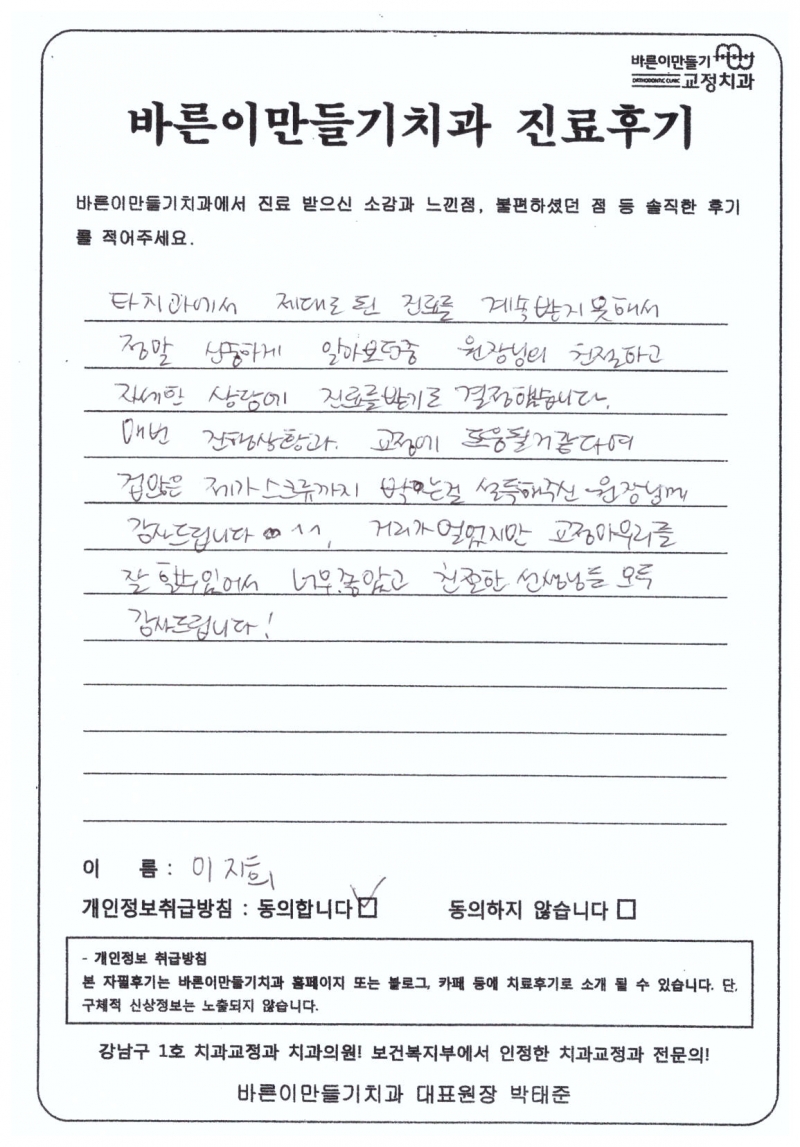 바른이만들기
ORTHODONTIC CLINIC 교정치과
바른이만들기치과 진료후기
바른이만들기치과에서 진료 받으신 소감과 느낀점, 불편하셨던 점 등 솔직한 후기
를 적어주세요.
타치과에서 제대로된 진료를 계속받지못해서
정말 신중하게 알아보던중 원장님의 친절하고
자세한 상담에 진료를받기로 결정했습니다.
매번 진행상황과 교정에 도움될거같다여
겁많은 제가 스크류까지 박는걸 설득해주신 원장님께
감사드립니다 ^^, 거리가 멀었지만 교정마무리를
잘 할수있어서 너무좋았고 친절한 선생님들 모두
감사드립니다!
이 름 : 이지희
개인정보취급방침 : 동의합니다 동의하지 않습니다
- 개인정보 취급방침
본 자필후기는 바른이만들기치과 홈페이지 또는 블로그, 카페 등에 치료후기로 소개 될 수 있습니다. 단,
구체적 신상정보는 노출되지 않습니다.
강남구 1호 치과교정과 치과의원! 보건복지부에서 인정한 치과교정과 전문의!
바른이만들기치과 대표원장 박태준